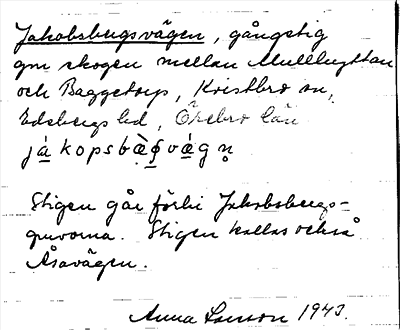 Jakobsbergsvägen, gångstig
gm skogen mellan Mullhyttan
och Baggetorp, Kvistbro sn,
Edsbergs hd, Örebro län
Stigen går förbi Jakobsbergs-
gruvorna. Stigen kallas också
Åsavägen.
Anna Larsson 1943.